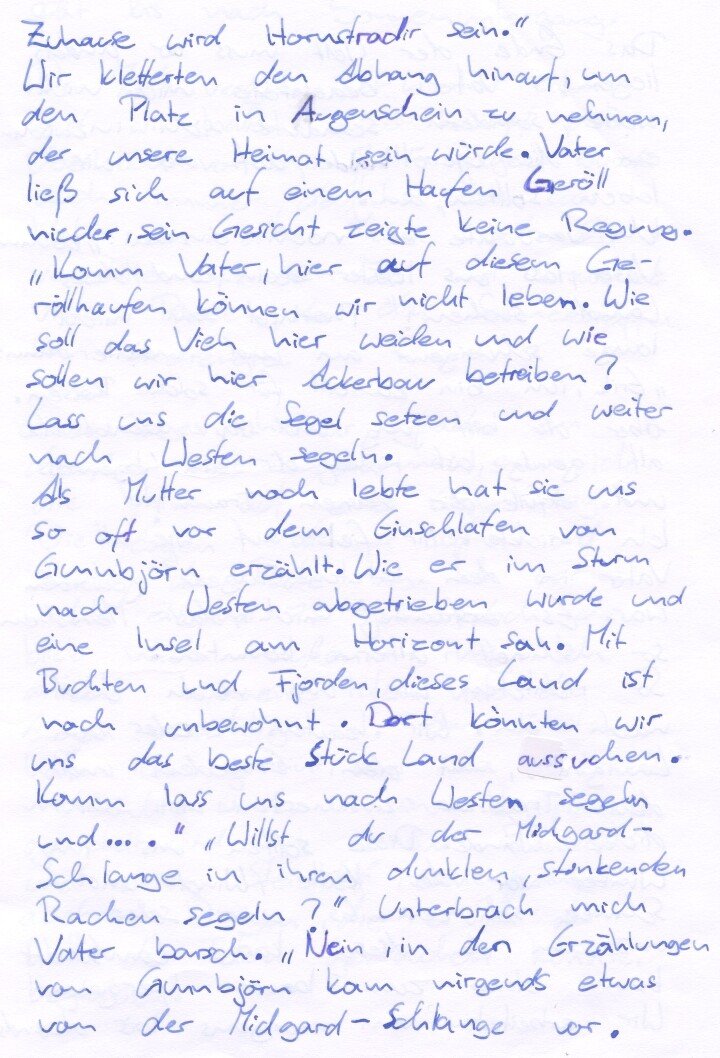 Zuhause wird Hornstradir sein."
Wir kletterten den Abhang hinauf, um
den Platz in Augenschein zu nehmen,
der unsere Heimat sein würde. Vater
ließ sich auf einem Haufen Geröll
nieder, sein Gesicht zeigte keine Regung.
„Komm Vater, hier auf diesem Ge-
röllhaufen können wir nicht leben. Wie
soll das Vieh hier weiden und wie
sollen wir hier Ackerbau betreiben?
Lass uns die Segel setzen und weiter
nach Westen segeln.
Als Mutter noch lebte hat sie uns
so oft vor dem Einschlafen von
Gunnbjörn erzählt. Wie er im Sturm
nach Westen abgetrieben wurde und
eine Insel am Horizont sah. Mit
Buchten und Fjorden, dieses Land ist
noch unbewohnt. Dort könnten wir
uns das beste Stück Land aussuchen.
Komm lass uns nach Westen segeln
und...." „Willst du der Midgard-
Schlange in ihren dunklen, stinkenden
Rachen segeln?" Unterbrach mich
Vater barsch. „Nein, in den Erzählungen
von Gunnbjörn kam nirgends etwas
von der Midgard-Schlange vor.